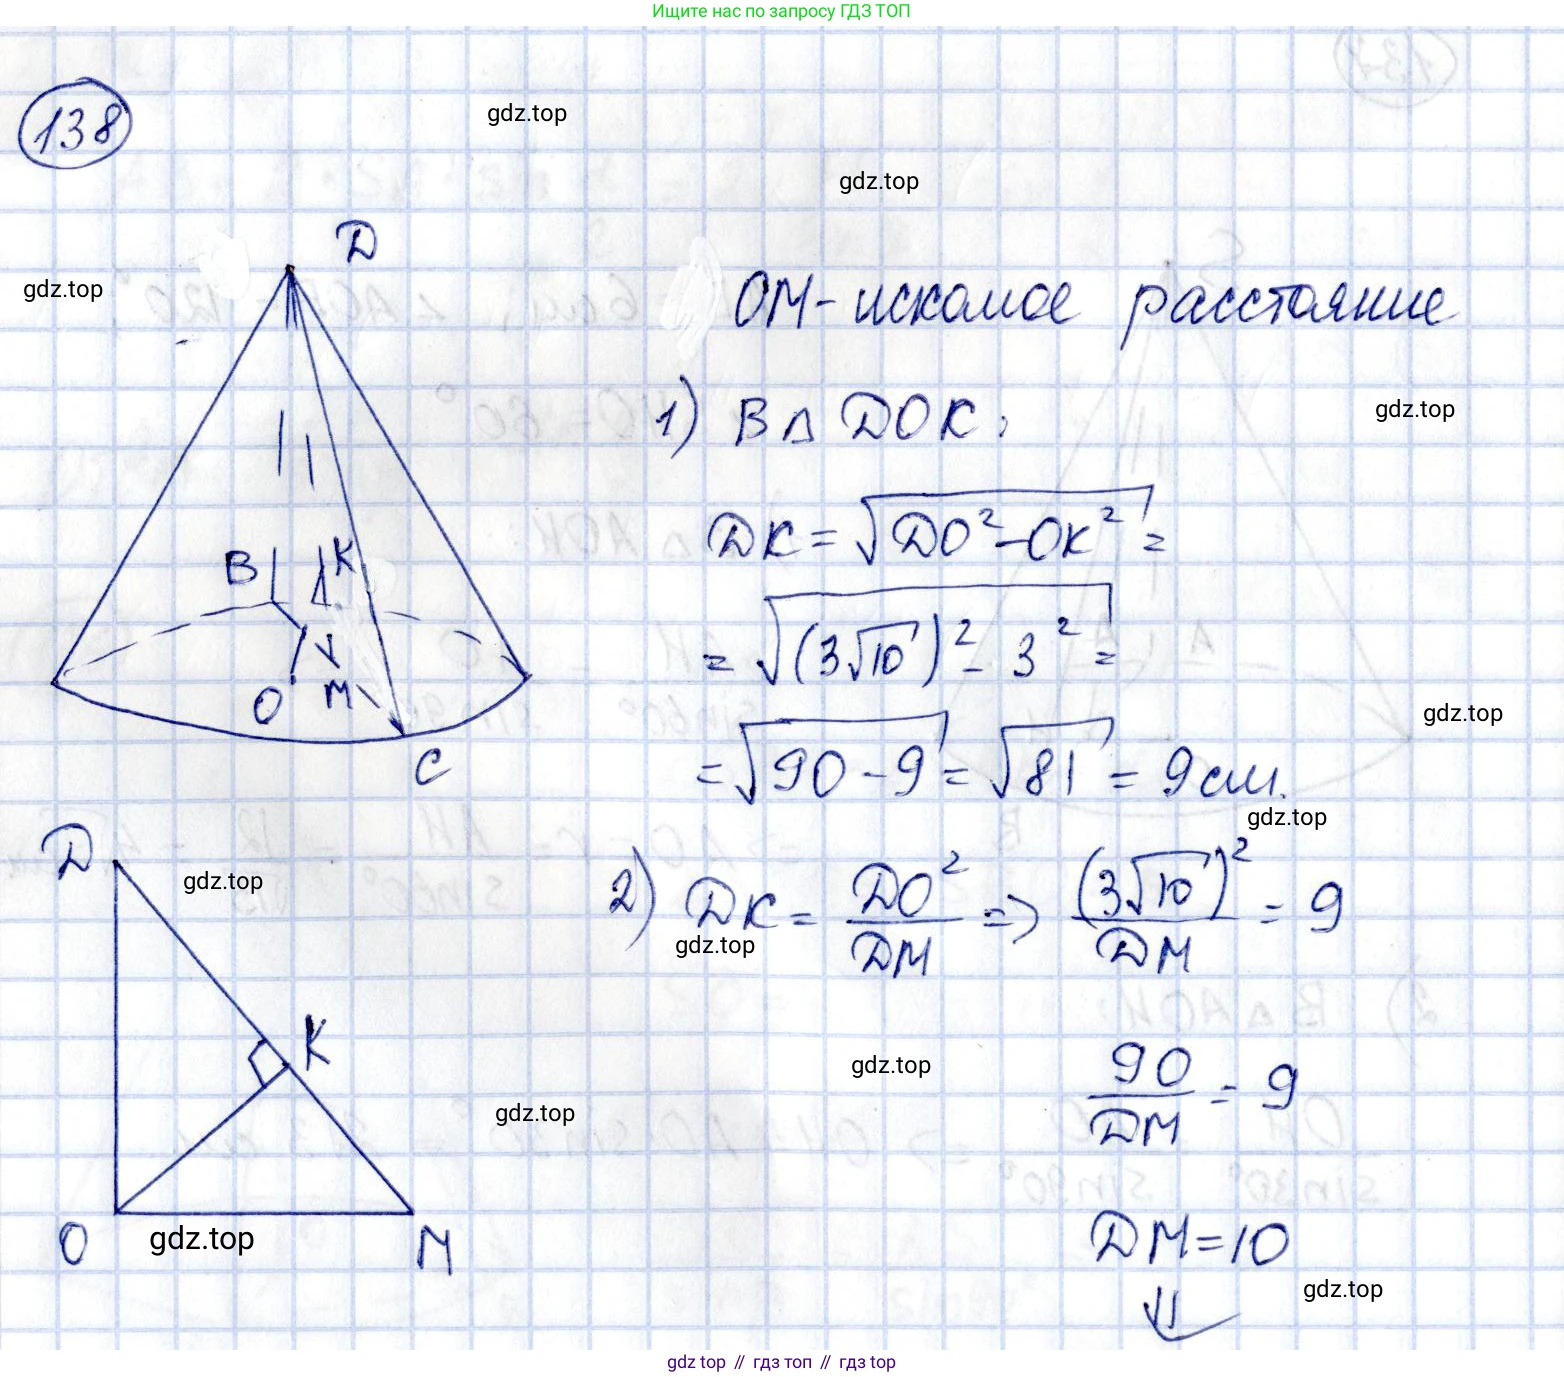 Ищите нас по запросу ГДЗ ТОП
138
gdz.top
gdz.top
D
gdz.top
ОМ - искомое расстояние
1) В △ DOK:
gdz.top
DK = √(DO² - OK²) =
B K
= √((3√10)² - 3²) =
O M
gdz.top
C
= √(90 - 9) = √81 = 9 см.
gdz.top
D
gdz.top
2) DK = DO²/DM => (3√10)²/DM = 9
gdz.top
K
gdz.top
90/DM = 9
gdz.top
O M
gdz.top
DM = 10
gdz.top
⇓
gdz top // гдз топ // гдз top